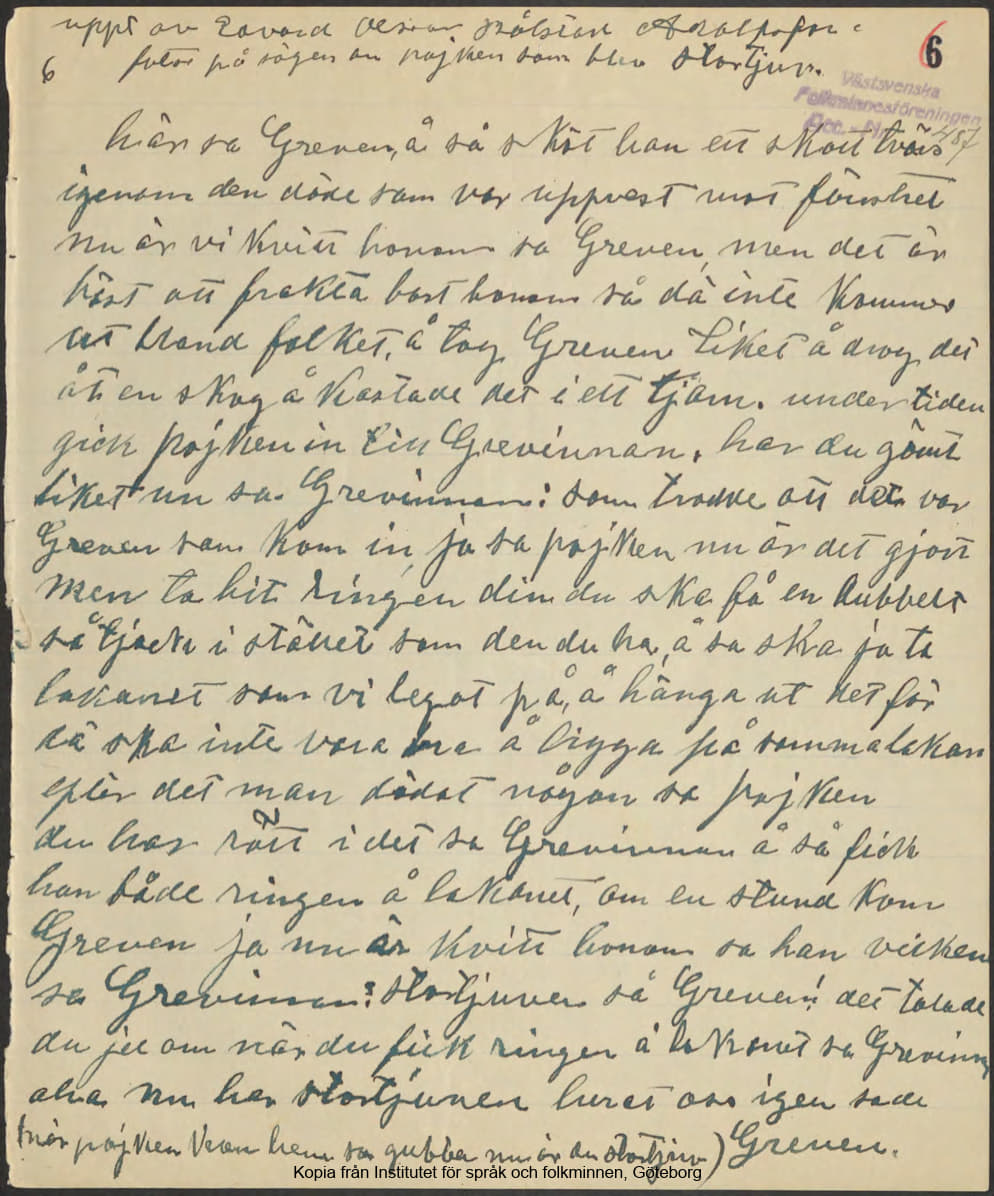 uppt av Edvard Olsson
6
6 forts på sägen om pojken som blev stortjuv.
Västsvenska
Folkminnesföreningen
Acc. - Nr 487
här sa Greven, å så sköt han ett skott tvärs
igenom den döde som var uppvest mot fönstret
nu är vi kvitt honom sa Greven, men det är
bäst att frakta bort honom så dä inte kommer
ut bland folket, å tog Greven Liket å drog det
åt en skog å kastade det i ett tjärn. under tiden
gick pojken in till Grevinnan. har du gömt
liket nu sa Grevinnan: som trodde att det var
Greven som kom in, ja sa pojken nu är det gjort
men ta hit ringen din du ska få en dubbelt
så tjock i stället som den du ha, å sa ska ja ta
lakanet som vi legat på, å hänga ut det för
dä ska inte vara bra å ligga på samma lakan
efter det man dödat någon sa pojken
du har rätt i det sa Grevinnan å så fick
han både ringen å lakanet, om en stund kom
Greven ja nu är kvitt honom sa han vilken
sa Grevinnan? Stortjuven sa Greven! det talade
du ju om när du fick ringen å lakanet sa Grevinnan
aha nu har stortjuven lurat oss igen sade
(när pojken kom hem sa gubben nu är du stortjuv) Greven.
Kopia från Institutet för språk och folkminnen, Göteborg